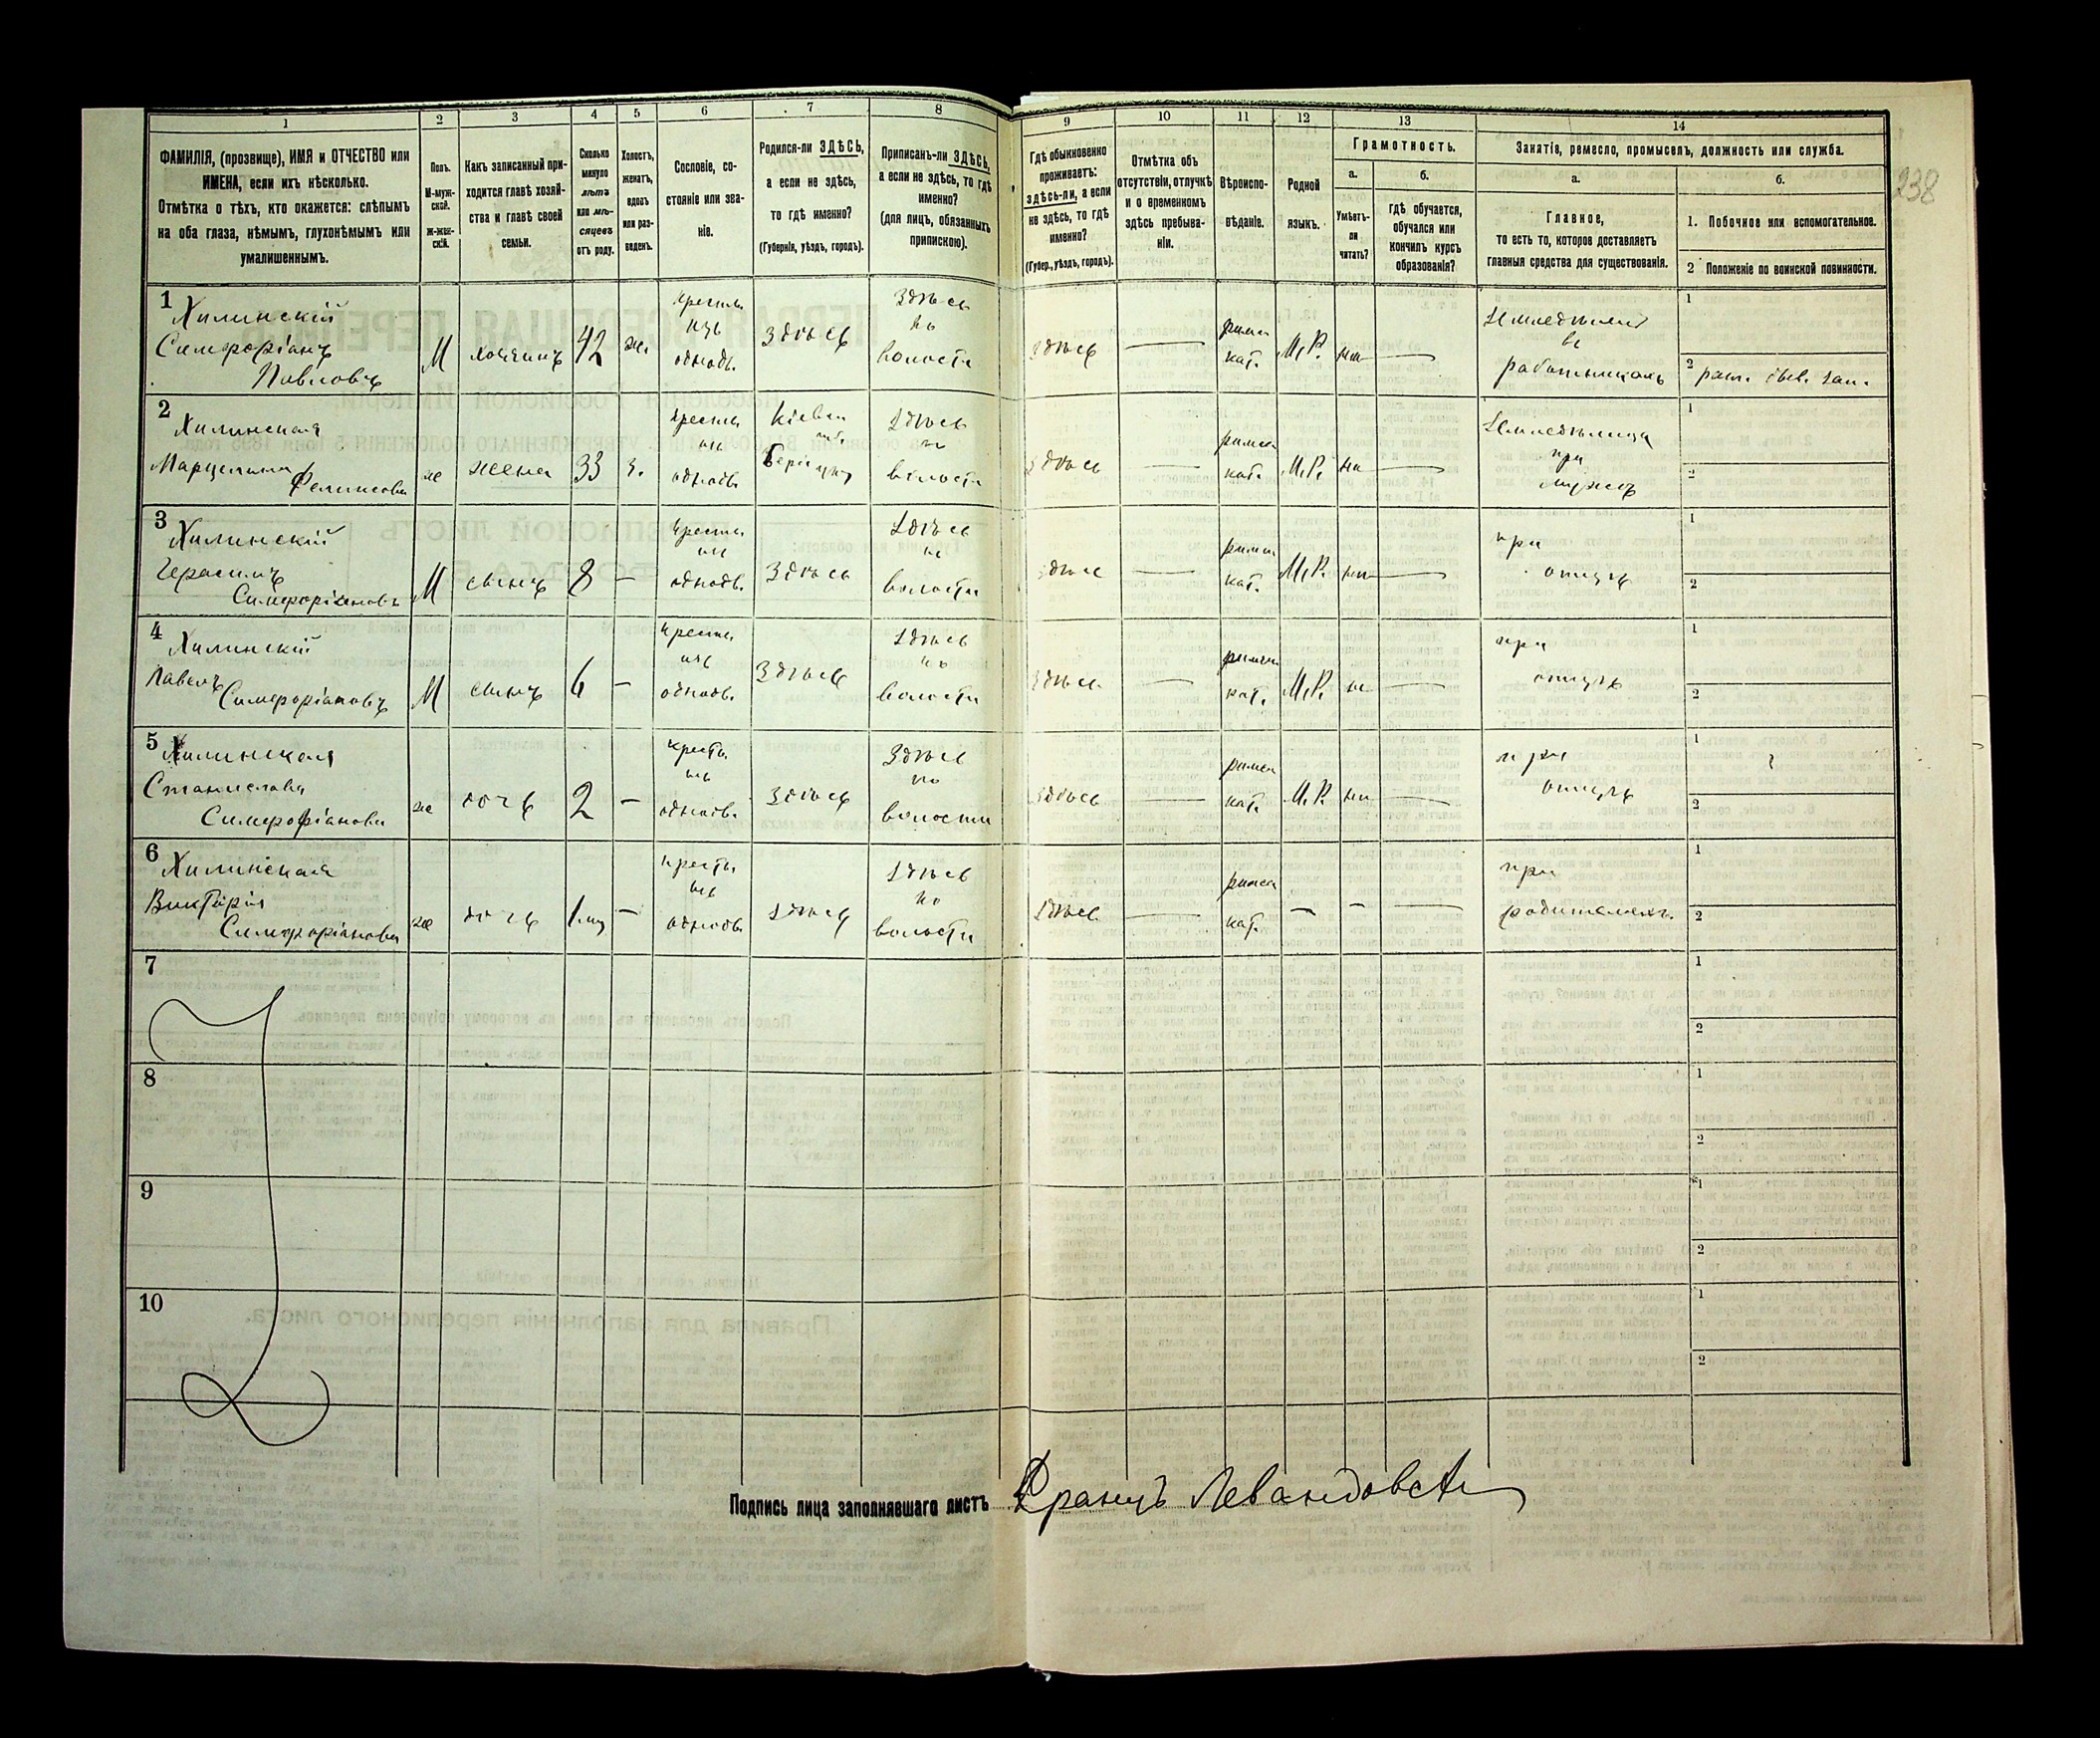 1 2 3 4 5 6 7 8 9 10 11 12 13 14
238
ФАМИЛІЯ, (прозвище), ИМЯ и ОТЧЕСТВО или
ИМЕНА, если ихъ нѣсколько.
Отмѣтка о тѣхъ, кто окажется: слѣпымъ
на оба глаза, нѣмымъ, глухонѣмымъ или
умалишеннымъ.
Полъ.
М-муж-
ской.
Ж-жен-
скій.
Какъ записанный при-
ходится главѣ хозяй-
ства и главѣ своей
семьи.
Сколько
минуло
лѣтъ
или мѣ-
сяцевъ
отъ роду.
Холостъ,
женатъ,
вдовъ
или раз-
веденъ.
Сословіе, со-
стояніе или зва-
ніе.
Родился-ли ЗДѢСЬ,
а если не здѣсь,
то гдѣ именно?
(Губернія, уѣздъ, городъ).
Приписанъ-ли ЗДѢСЬ,
а если не здѣсь, то гдѣ
именно?
(для лицъ, обязанныхъ
припискою).
Гдѣ обыкновенно
проживаетъ:
здѣсь-ли, а если
не здѣсь, то гдѣ
именно?
(Губер., уѣздъ, городъ).
Отмѣтка объ
отсутствіи, отлучкѣ
и о временномъ
здѣсь пребыва-
ніи.
Вѣроиспо-
вѣданіе.
Родной
языкъ.
Грамотность.
а.
Умѣетъ-
ли
читать?
б.
Гдѣ обучается,
обучался или
кончилъ курсъ
образованія?
Занятія, ремесло, промыселъ, должность или служба.
а.
Главное,
то есть то, которое доставляетъ
главныя средства для существованія.
б.
1. Побочное или вспомогательное.
2 Положеніе по воинской повинности.
1
Хилинскій
Симфоріанъ
Павловъ
М
хозяинъ
42
ж.
кресть.
изъ
однодв.
Здѣсь
Здѣсь
по
волости
здѣсь
римск
кат.
М.Р.
нет
Земледѣлецъ
въ
работникахъ
1
2 ратн. опол. зап.
2
Хилинская
Марцелина
Феликсова
ж
жена
33
з.
кресть.
изъ
однодв.
Кіевск
губ.
Здѣсь
по
волости
здѣсь
римск
кат.
М.Р.
нет
Земледѣлица
при
мужѣ
1
2
3
Хилинскій
Герасимъ
Симфоріановъ
М
сынъ
8
кресть.
изъ
однодв.
Здѣсь
Здѣсь
по
волости
здѣсь
римск
кат.
М.Р.
нет
при
отцѣ
1
2
4
Хилинскій
Павелъ
Симфоріановъ
М
сынъ
6
кресть.
изъ
однодв.
Здѣсь
Здѣсь
по
волости
здѣсь
римск
кат.
М.Р.
нет
при
отцѣ
1
2
5
Хилинская
Станислава
Симфоріанова
ж
дочь
2
кресть.
изъ
однодв.
Здѣсь
Здѣсь
по
волости
здѣсь
римск
кат.
М.Р.
нет
при
отцѣ
1
2
6
Хилинская
Викторія
Симфоріанова
ж
дочь
1 мц
кресть.
изъ
однодв.
Здѣсь
Здѣсь
по
волости
здѣсь
римск
кат.
при
родителяхъ
1
2
7
1
2
8
1
2
9
1
2
10
1
2
Подпись лица заполнявшаго листъ Францъ Левандовскі